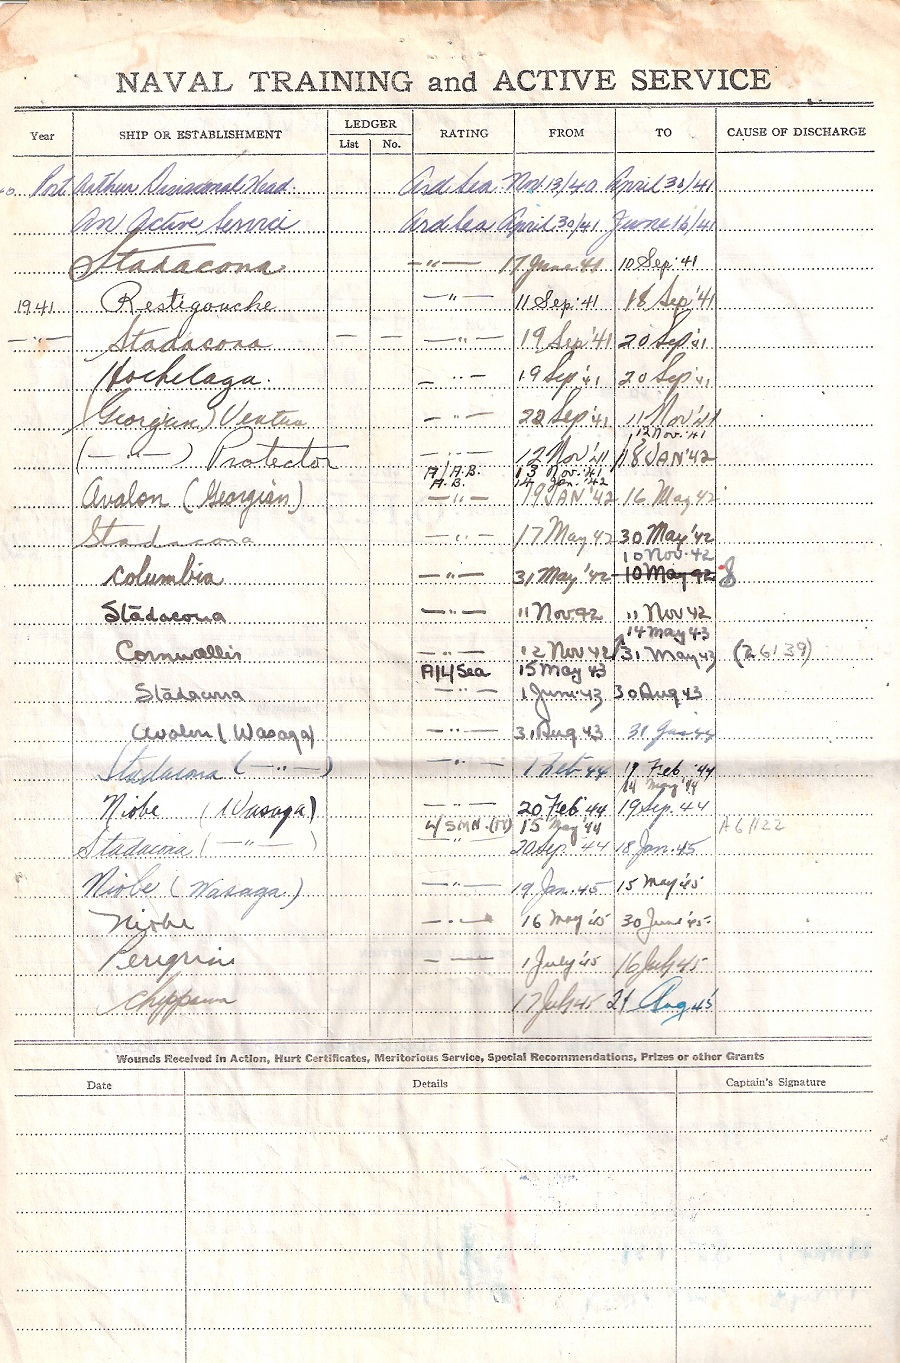 NAVAL TRAINING and ACTIVE SERVICE
Year SHIP OR ESTABLISHMENT LEDGER RATING FROM TO CAUSE OF DISCHARGE
List No.
Port Arthur Divisional Head. Ord Sea. Nov. 13/40 April 30/41
On Active Service Ord Sea April 30/41 June 16/41
Stadacona —"— 17 June 41 10 Sep. '41
1941 Restigouche —"— 11 Sep. '41 18 Sep '41
—"— Stadacona — — —"— 19 Sep '41 20 Sep '41
Hochelaga. —"— 19 Sep '41 20 Sep '41
(Georgian) Venture —"— 22 Sep '41 11 Nov '41
12 Nov. '41
(—"—) Protector —"— 12 Nov '41 18 JAN '42
A/A.B. 13 Nov. '41
A.B. 14 Jan. '42
Avalon (Georgian) —"— 19 JAN '42 16 May 42
Stadacona —"— 17 May 42 30 May '42
10 Nov. 42
Columbia —"— 31 May '42 10 May 42
Stadacona —"— 11 Nov 42 11 Nov 42
14 May 43
Cornwallis —"— 12 Nov 42 31 May 43 (26139)
A/L/Sea 15 May 43
Stadacona —"— 1 June 43 30 Aug 43
Avalon (Wasaga) —"— 31 Aug 43 31 Jan 44
Stadacona (—"—) —"— 1 Feb 44 19 Feb '44
14 May '44
Niobe (Wasaga) —"— 20 Feb '44 19 Sep. 44
15 May '44 A61122
Stadacona (—"—) —"— 20 Sep '44 18 Jan. 45
Niobe (Wasaga) —"— 19 Jan. 45 15 May '45
Niobe —"— 16 May '45 30 June '45
Peregrine — — 1 July '45 16 July 45
Chippawa 17 July 45 21 Aug 45
Wounds Received in Action, Hurt Certificates, Meritorious Service, Special Recommendations, Prizes or other Grants
Date Details Captain's Signature